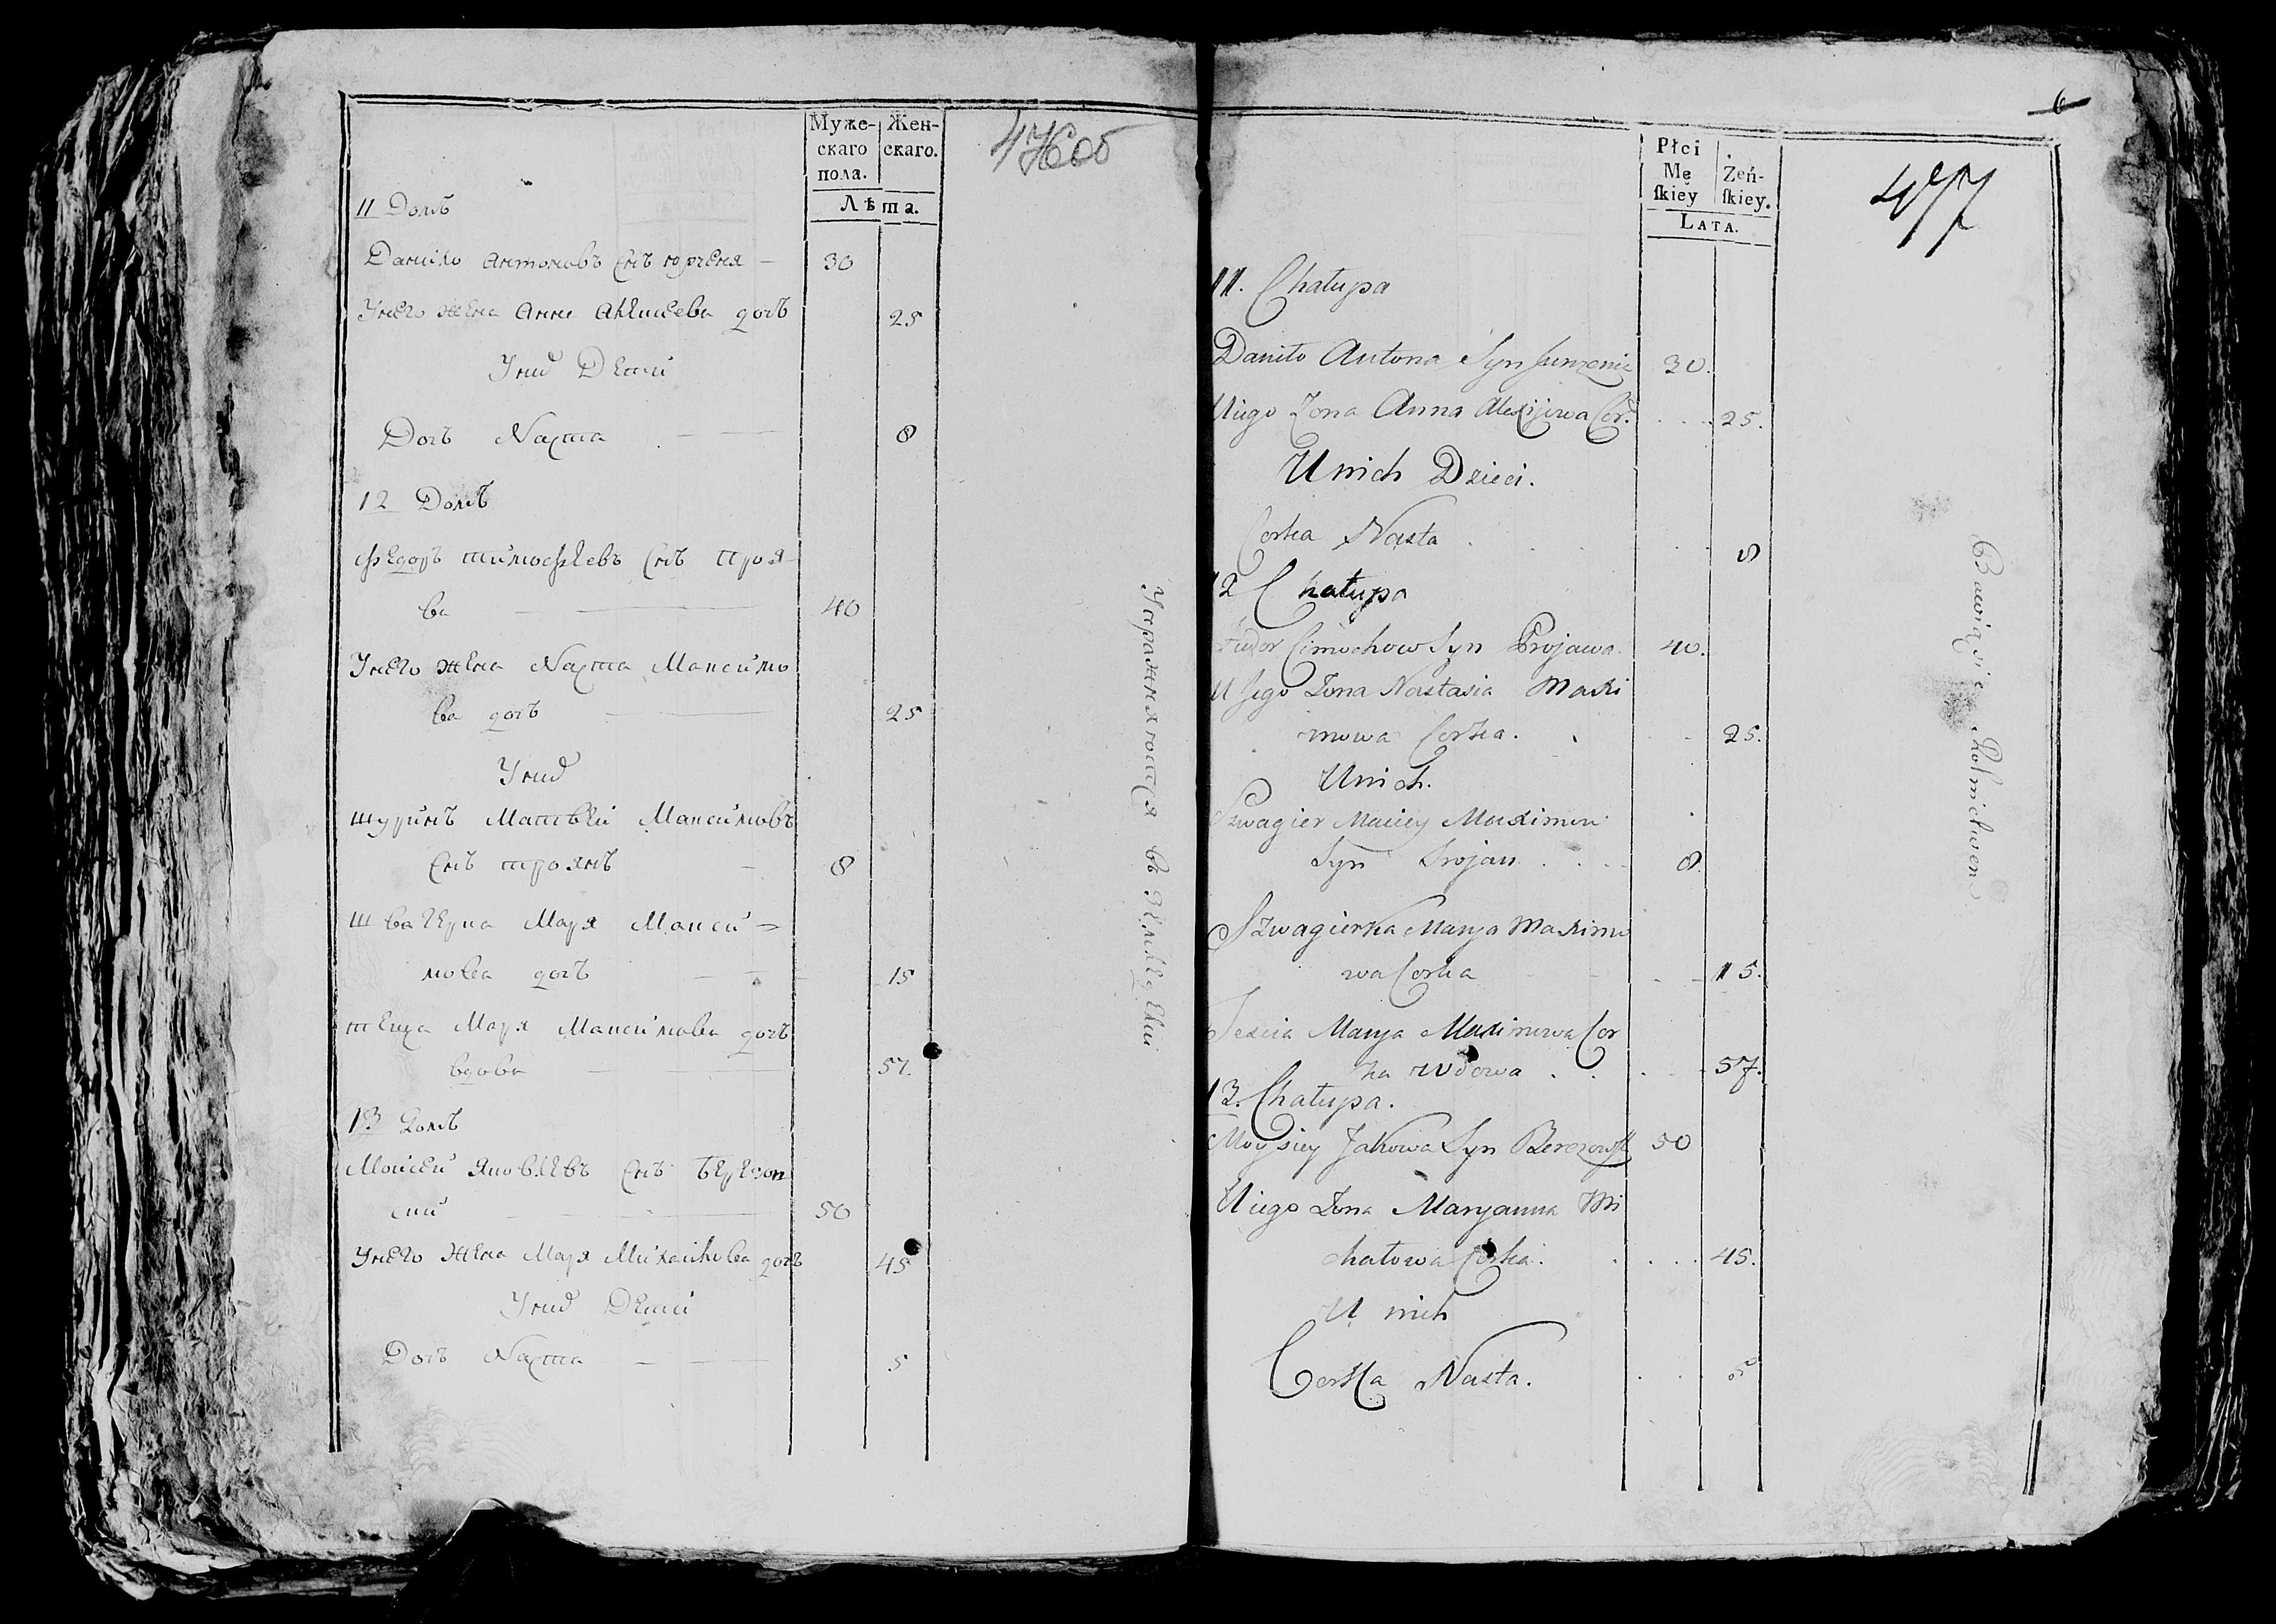 Муже-
скаго
пола.
Жен-
скаго.
Лѣта.
476 об
11 Домъ
Данило Антоновъ Снъ юрченя — 30
Унего жена Анна Алексеева дочъ 25
Уних Дети
Дочъ Наста — — 8
12 Домъ
Федоръ тимофеевъ Снъ Троя-
ва — — 40
Унего жена Наста Максимо
ва дочъ — 25
Уних
шуринъ Матвей Максимовъ
Снъ троянъ — 8
швагерка Маря Макси=
мова дочъ — — 15
теща Маря Максимова дочъ
вдова — — 57.
13 Домъ
Моисей Яковлевъ Снъ Березов
ский — — 50
Унего жена Маря Михайлова дочъ 45
Уних Дети
Дочъ Наста — — 5
Упражняются въ Земледелии
6
477
Płci
Mę
ſkiey
Żeń-
ſkiey.
LATA.
11. Chałupa
Daniło Antona Syn Jurczenia 30.
Uiego Zona Anna Alexijewa Cor. . . . 25.
Unich Dzieci.
Corka Nasta . . . . 8
12 Chałupa
Fiedor Cimochow Syn Trojawa 40.
U Jego Zona Nastasia Maxi
mowa Corka. . . . 25.
Unich.
Szwagier Maciey Maximow
Syn Trojan . . . . 8.
Szwagierka Marya Maximo
wa Corka . . 15.
Teścia Marya Maximowa Cor
ka wdowa . . . . 57.
13. Chałupa.
Moysiey Jakowa Syn Berezowſk 50
Uiego Zona Maryanna Mi
chałowa Corka. . . . . 45.
U nich
Corka Nasta. . . . 5
Bawią się Rolnictwem